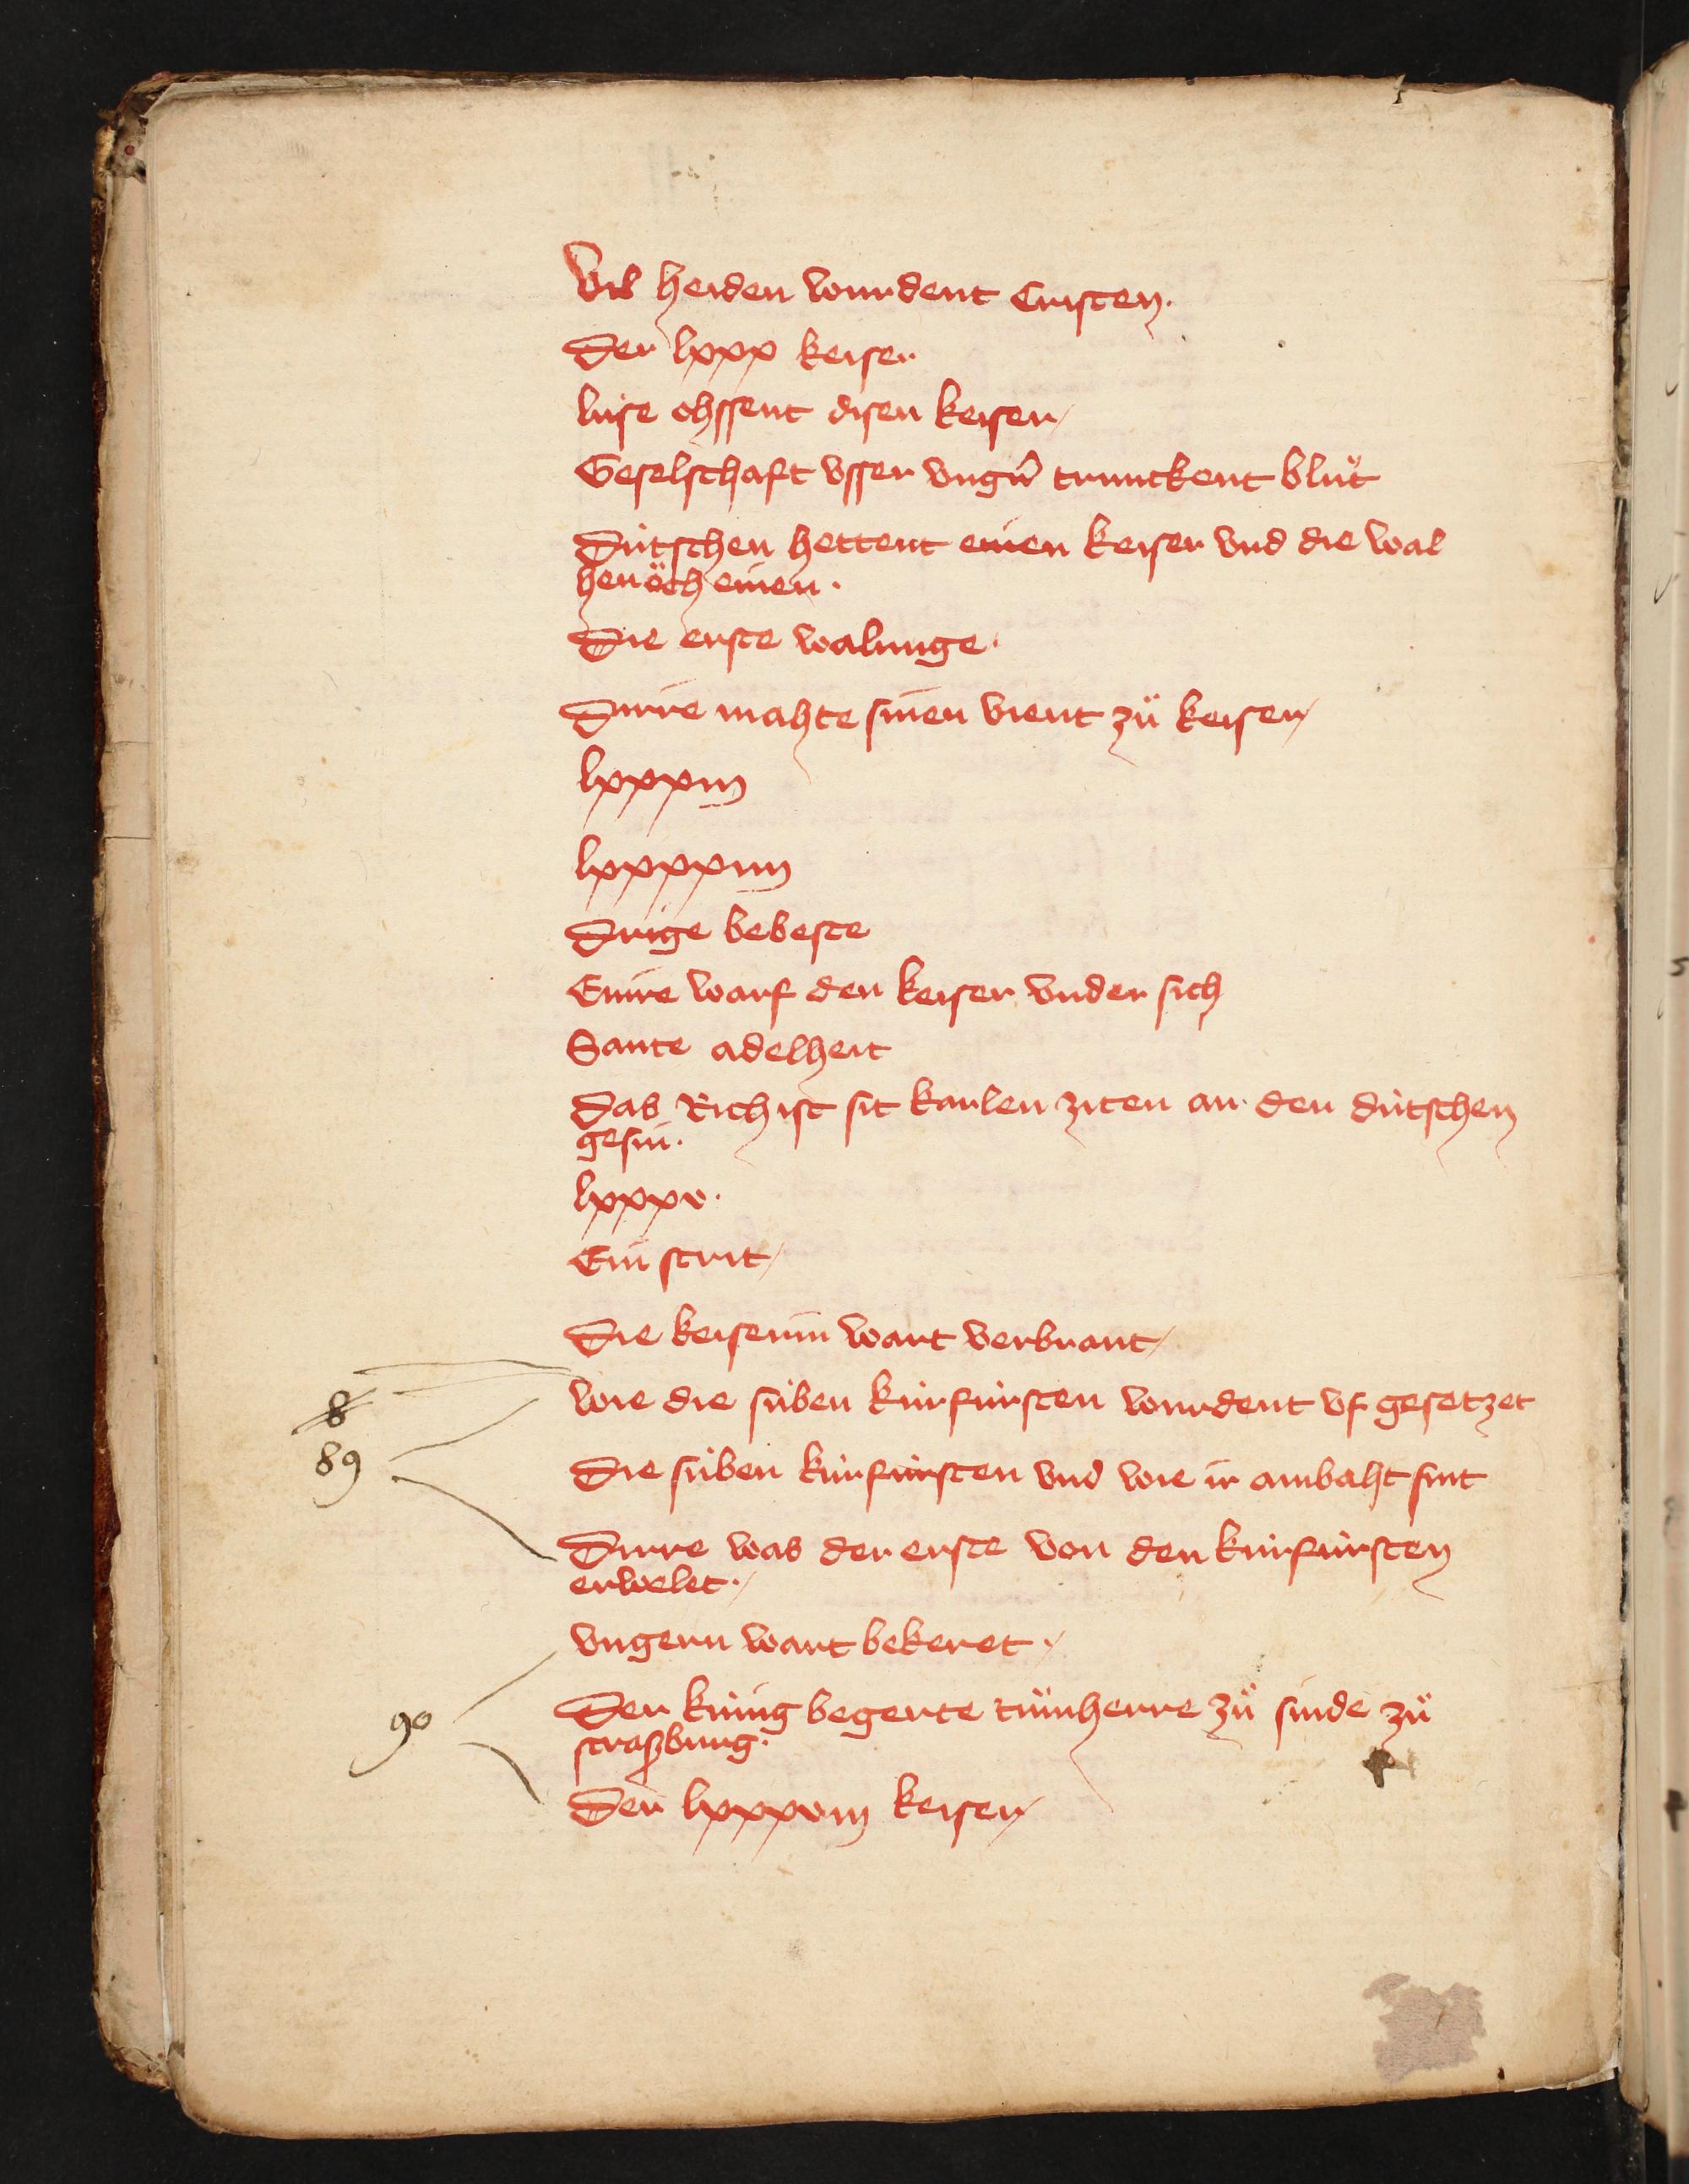 Vil heiden wurdent Cristen.
Der lxxx keiser
lúse ohssent disen keiser
Geselschaft vsser vnger͂ trunckent blůt
Dútschen hettent einen keiser vnd die wal
hen öch einen.
Die erste walunge.
Dirre mahte sinen vient zů keiser
lxxxiij
lxxxxiiij
Drige bebeste
Einre warf den keiser vnder sich
Sante adelheit
Das Rich ist sit karlen ziten an den dútschen
gesin.
lxxxv.
Ein strit
Die keiserin wart verbrant
8
wie die súben kúrfúrsten wurdent vf gesetzet
89
Die súben kúrfúrsten vnd wie ir ambaht sint
Dirre was der erste von den kúrfúrsten
erwelet.
vngern wart bekeret.
90
Der kúnig begerte tůmherre zů sinde zů
straszburg.
Der lxxxviij keiser